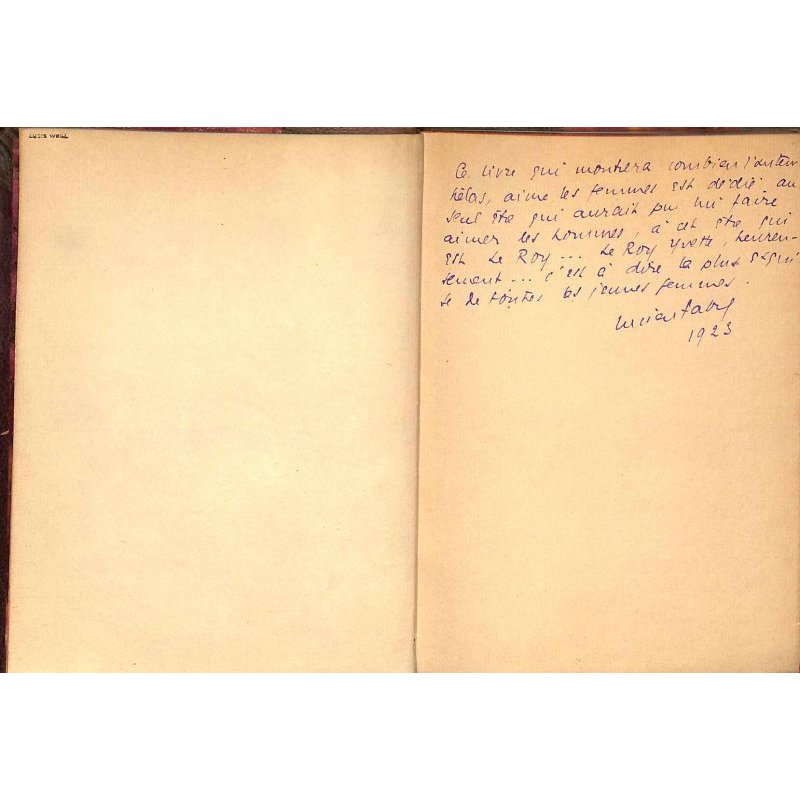 LOUIS WELL
Ce livre qui montrera combien l'auteur
hélas, aime les femmes est dédié au
seul être qui aurait pu lui faire
aimer les hommes, à cet être qui
est Le Roy ... Le Roy Yvette, heureu-
sement ... c'est à dire la plus exqui
se de toutes les jeunes femmes.
Lucien Fabre
1923